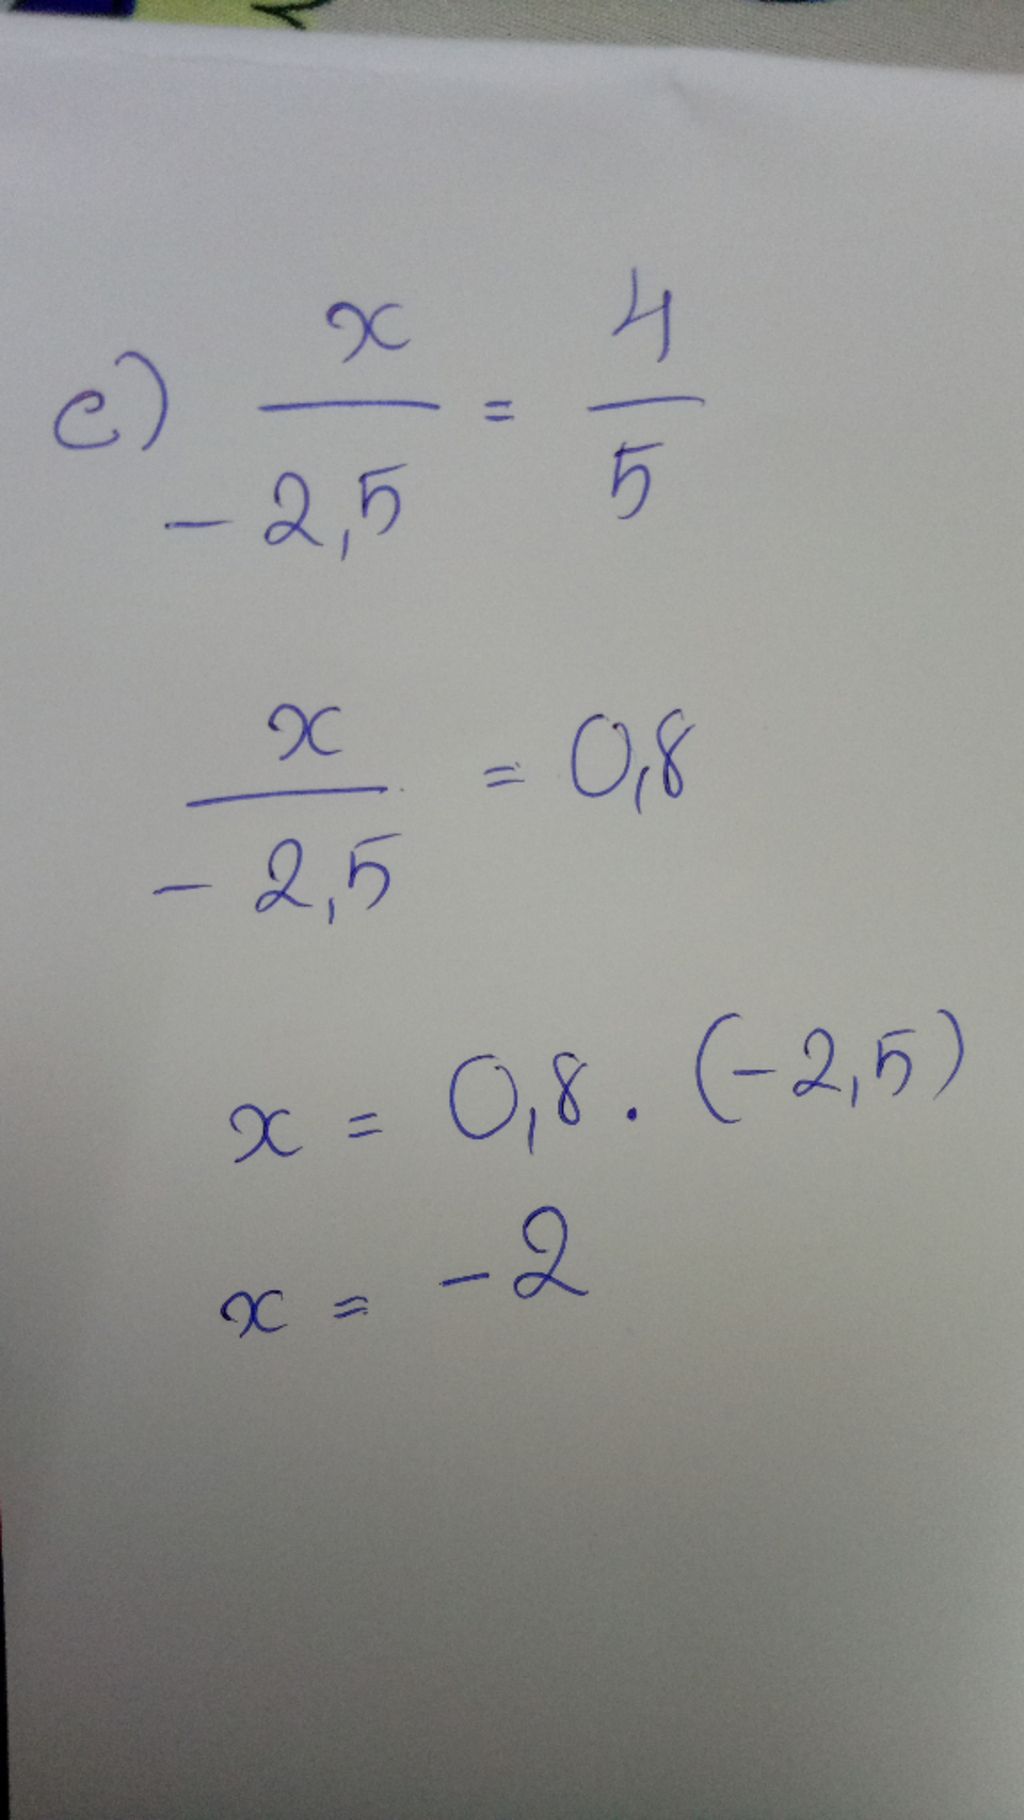 c) x/-2,5 = 4/5
x/-2,5 = 0,8
x = 0,8 . (-2,5)
x = -2